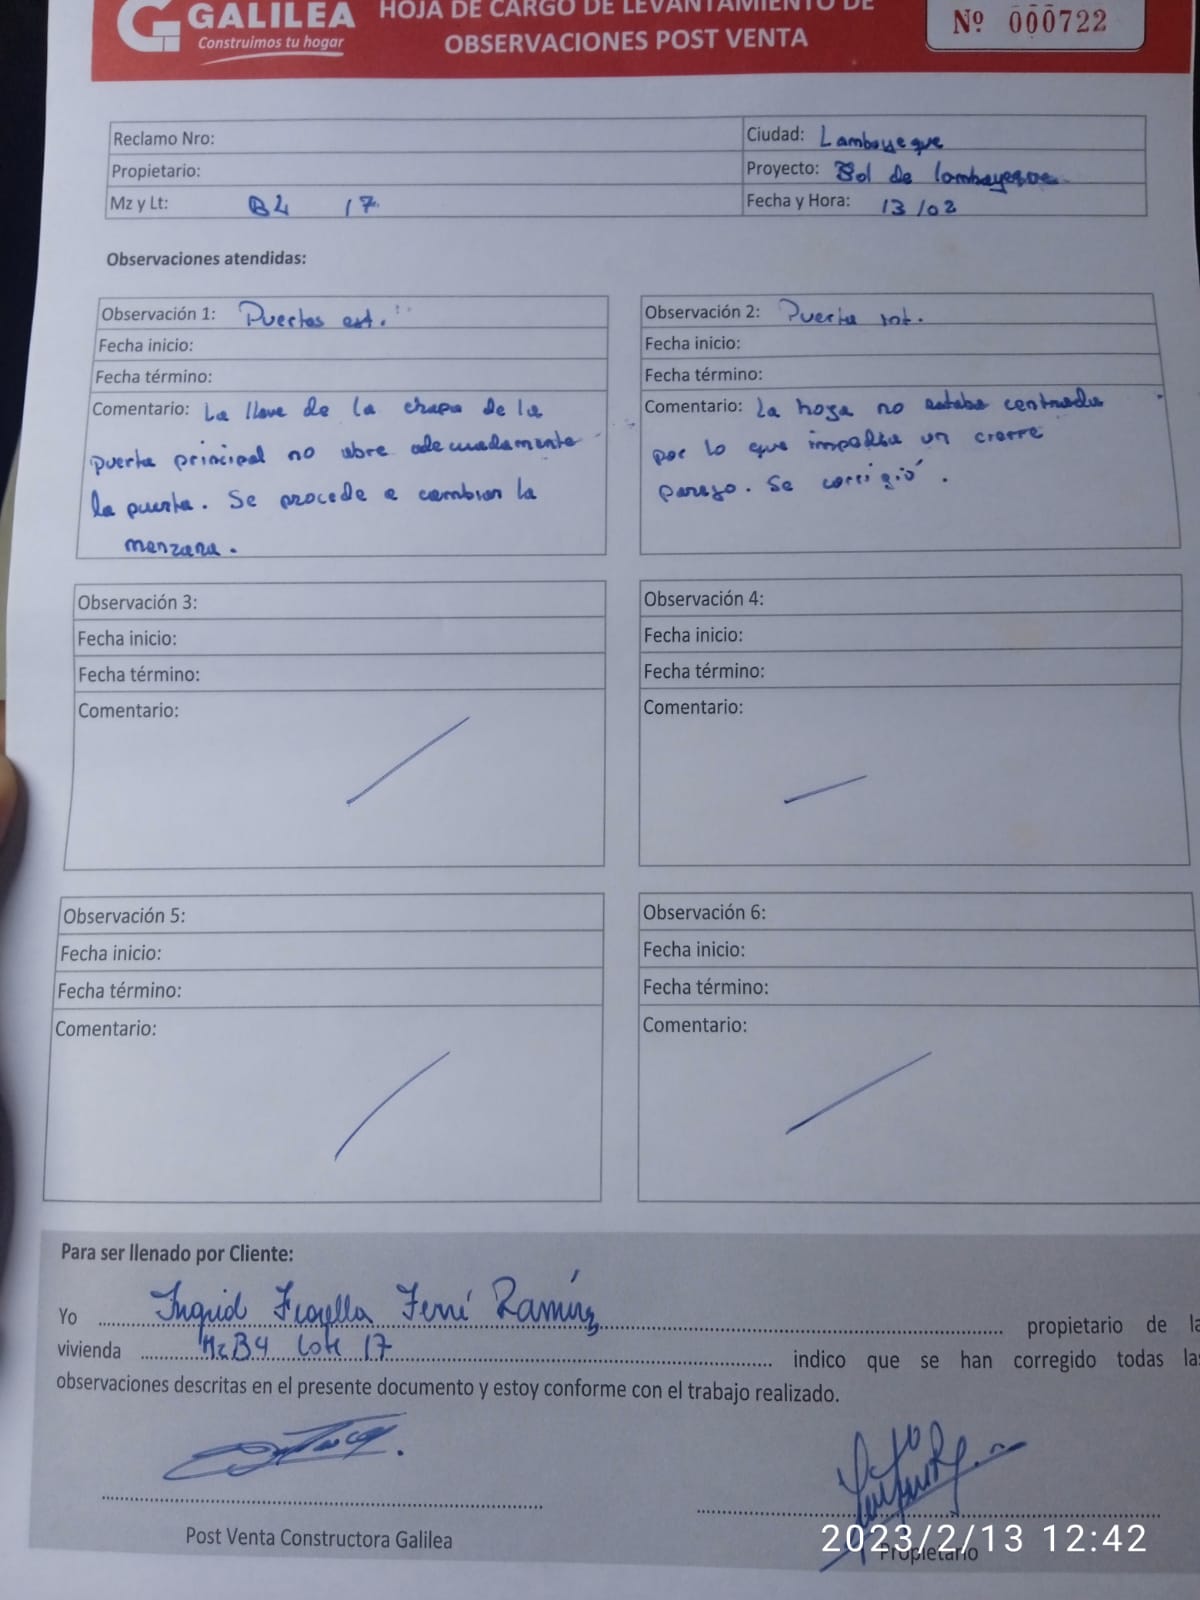 GALILEA
Construimos tu hogar
HOJA DE CARGO DE LEVANTAMIENTO DE
OBSERVACIONES POST VENTA
Nº 000722
Reclamo Nro:
Ciudad: Lambayeque
Propietario:
Proyecto: Sol de lambayeque
Mz y Lt: B4 17
Fecha y Hora: 13/02
Observaciones atendidas:
Observación 1: Puertas ext.
Fecha inicio:
Fecha término:
Comentario: La llave de la chapa de la
puerta principal no abre adecuadamente
la puerta. Se procede a cambiar la
manzana.
Observación 2: Puerta int.
Fecha inicio:
Fecha término:
Comentario: La hoja no estaba centrada
por lo que impedía un cierre
parejo. Se corrigió.
Observación 3:
Fecha inicio:
Fecha término:
Comentario:
Observación 4:
Fecha inicio:
Fecha término:
Comentario:
Observación 5:
Fecha inicio:
Fecha término:
Comentario:
Observación 6:
Fecha inicio:
Fecha término:
Comentario:
Para ser llenado por Cliente:
Yo Ingrid Fiorella Ferré Ramírez propietario de la
vivienda Mz B4 Lote 17 indico que se han corregido todas las
observaciones descritas en el presente documento y estoy conforme con el trabajo realizado.
Post Venta Constructora Galilea
Propietario
2023/2/13 12:42